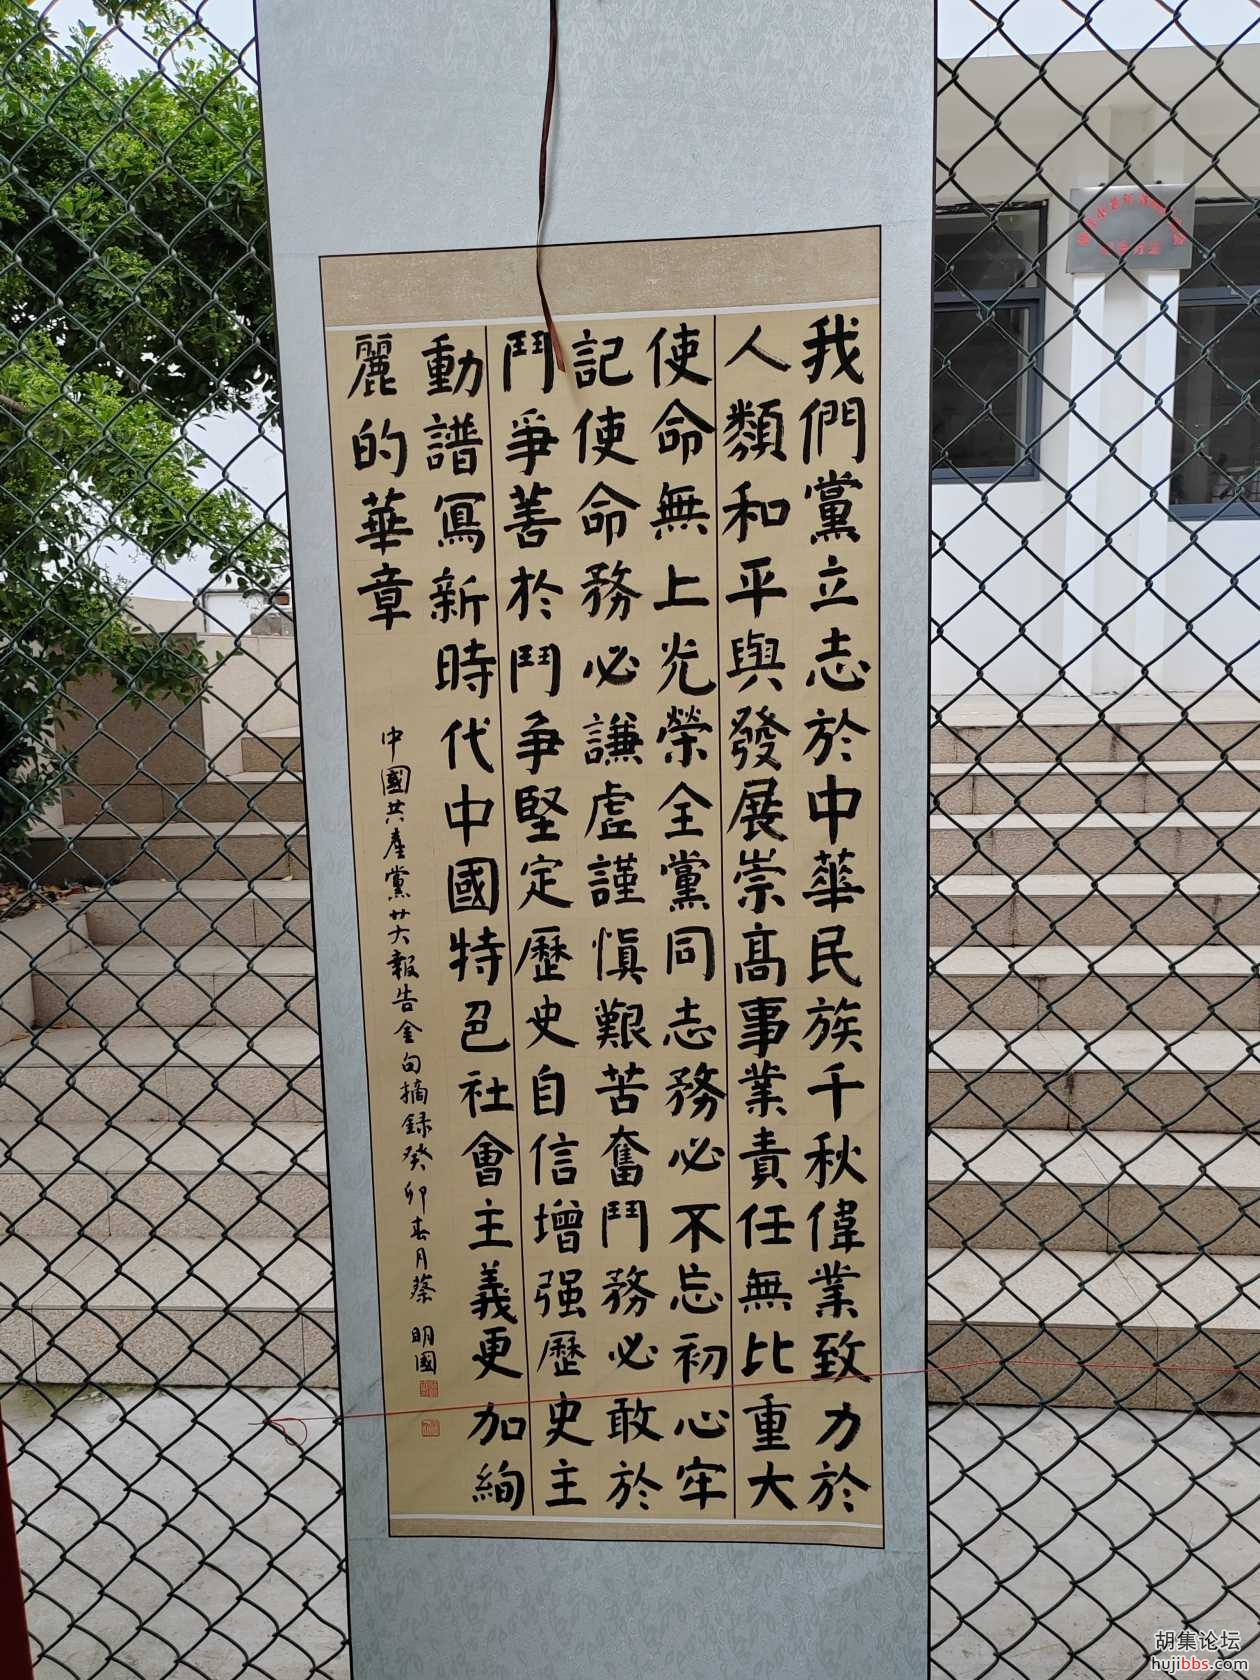 我們黨立志於中華民族千秋偉業致力於
人類和平與發展崇高事業責任無比重大
使命無上光榮全黨同志務必不忘初心牢
記使命務必謙虛謹慎艱苦奮鬥務必敢於
鬥爭善於鬥爭堅定歷史自信增强歷史主
動譜寫新時代中國特色社會主義更加絢
麗的華章
中國共產黨廿大報告金句摘録癸卯春月蔡明國
胡集论坛
hujibbs.com